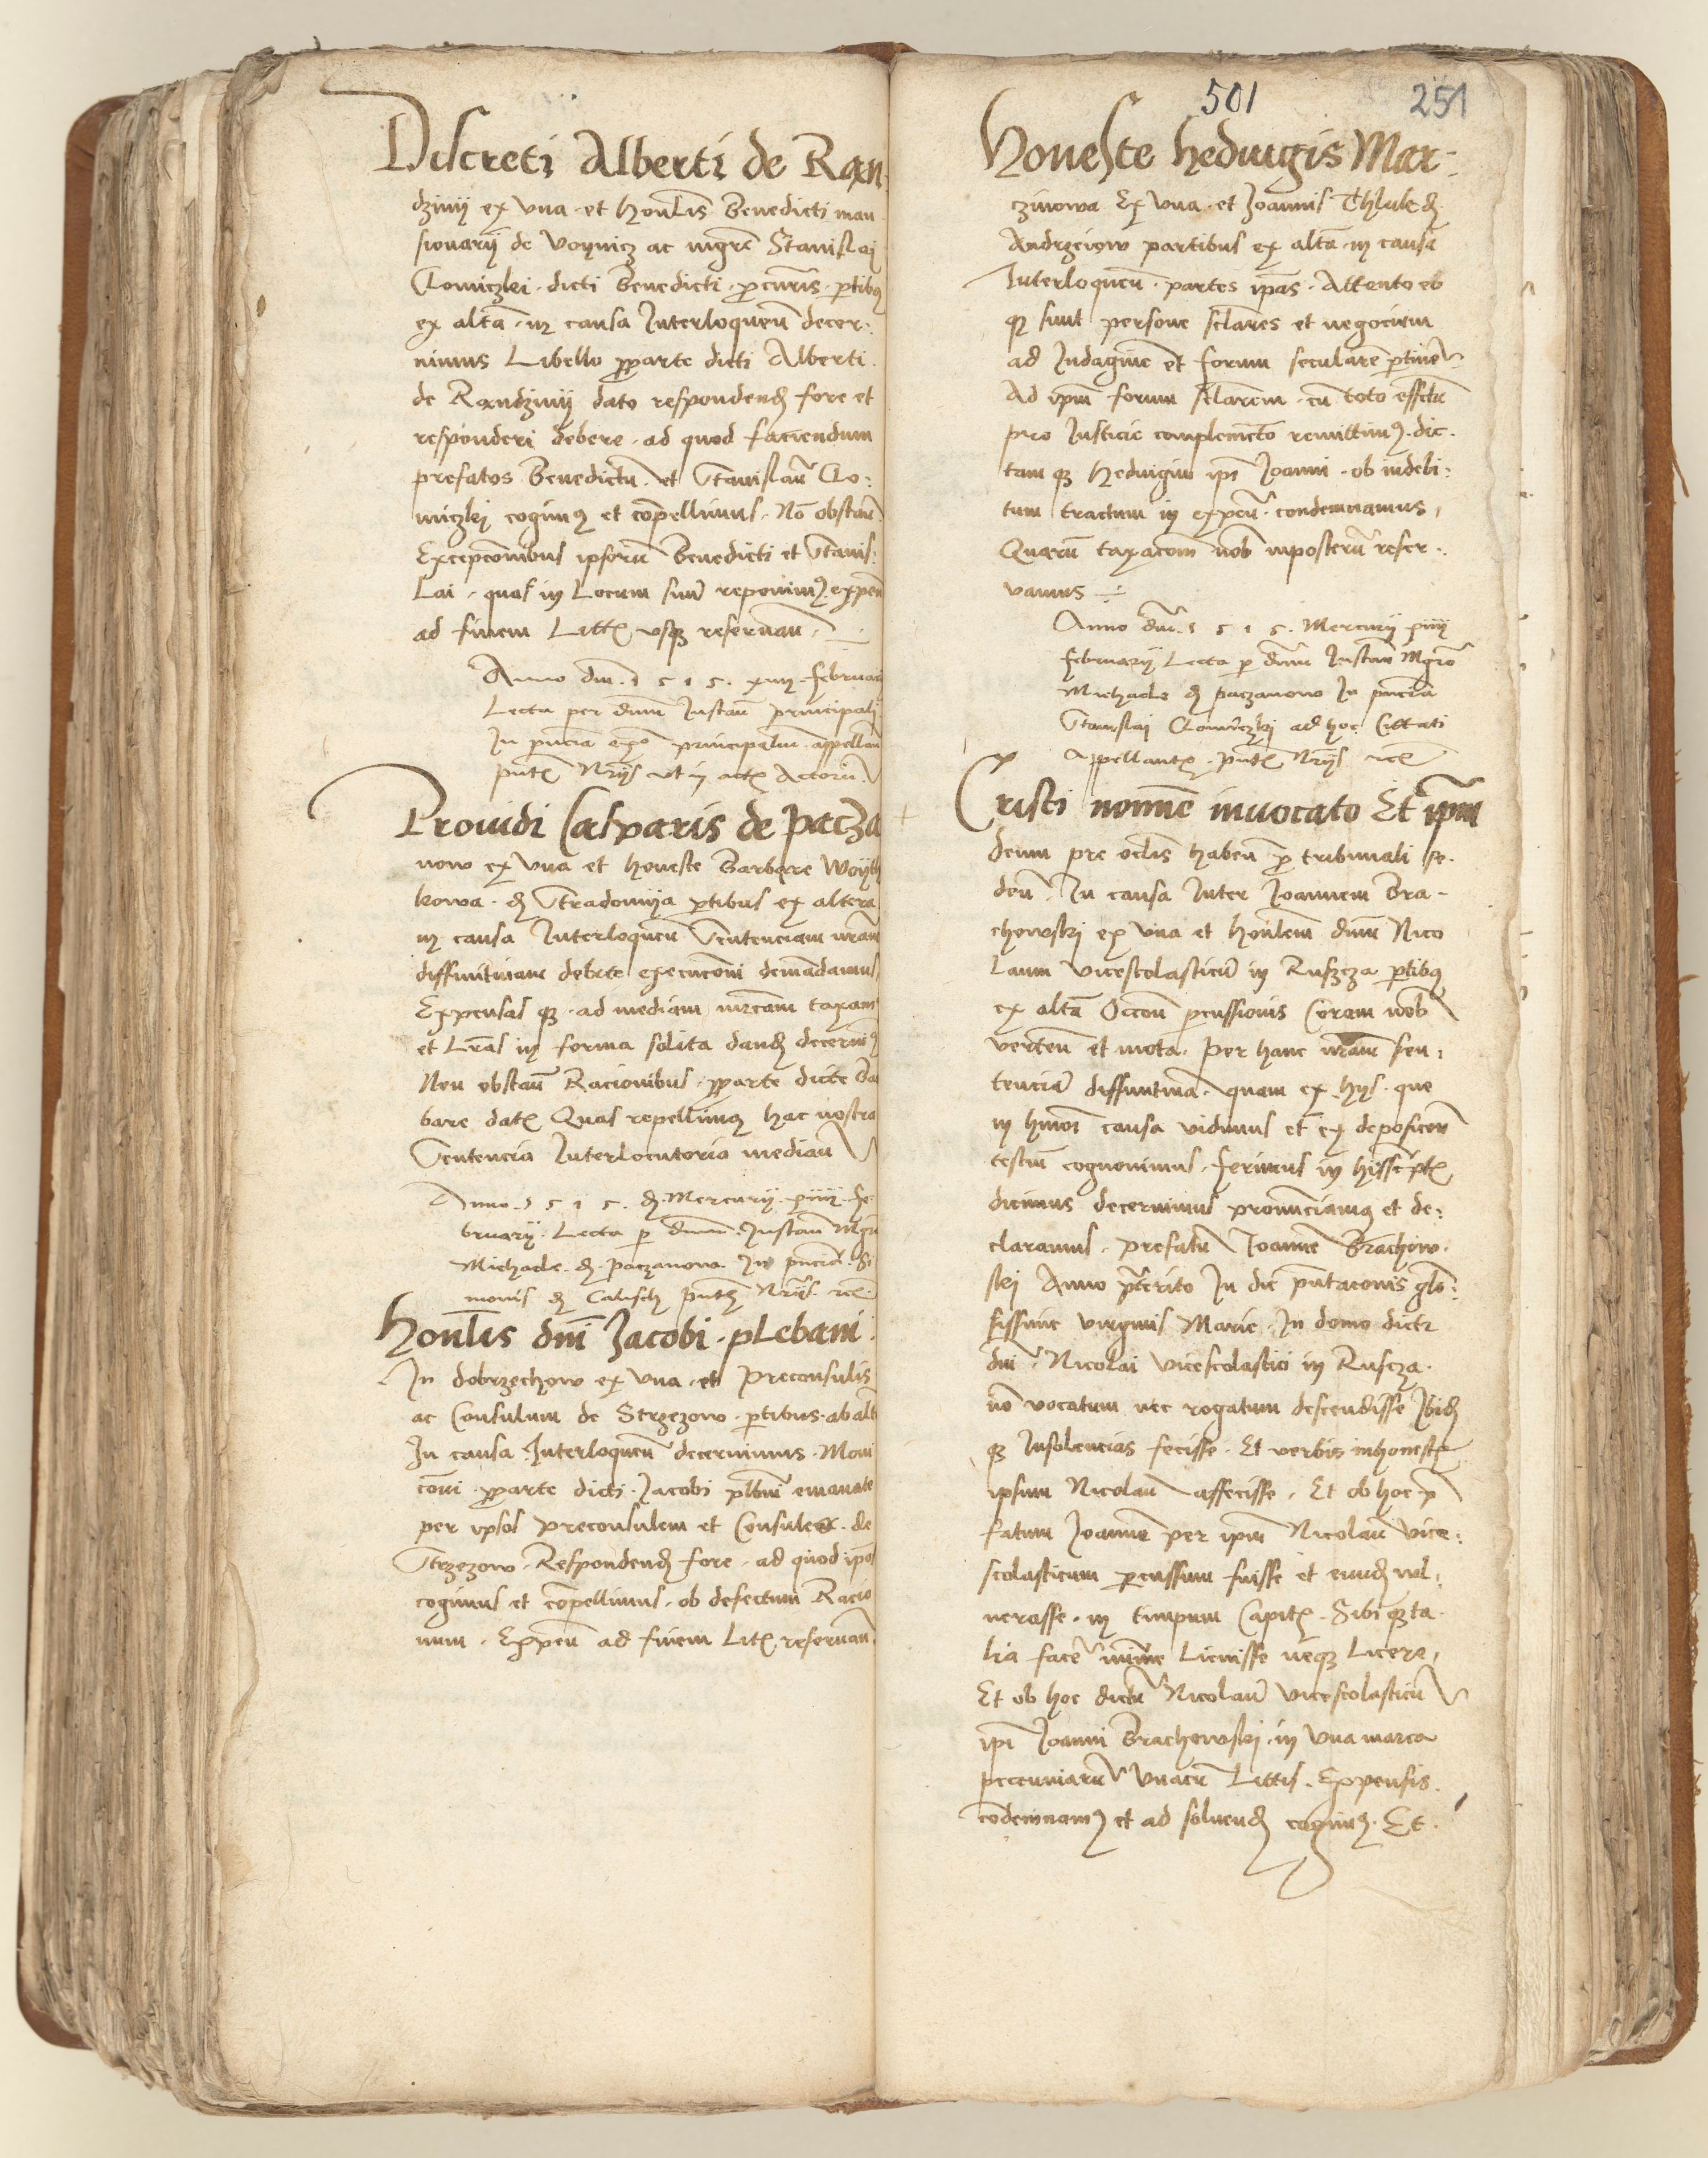 Discreti Alberti de Ran
dzinij ex vna et honlis Benedicti man
sionarij de Voynicz ac mgri Stanislai
Clomiczki dicti Benedicti procuris ptibus
ex alta in causa Interloquen decer:
nimus Libello pparte dicti Alberti
de Randzinij dato respondend fore et
responderi debere ad quod faciendum
prefatos Benedictu et Stanislau Clo:
miczki cogimus et copellimus No obstan
Excepcoibus ipsoru Benedicti et Stanis:
lai quas in Locum suu reponimus expen
ad finem Litt usque reseruan
Anno dni 1515 xiiij februarij
Lecta per dnum Instan principali
In pncia principaliu appellan
pntibus Nrijs vt in act Actoru
Prouidi Casparis de pacza
now ex vna et honeste Barbare Woyth
kowa de Stradomya ptibus ex altera
in causa Interloquen Sentenciam nram
diffinitiuam debite execuconi demandamus
Expensas que ad mediam mrcam taxam
et Lras in forma solita dand decernimus
Non obstan Racionibus pparte dicte Bar
bare dat Quas repellimus hac nostra
Sentencia Interlocutoria median
Anno 1515 d Mercurij xiiij fe
bruarij Lecta p dnum Instan Mgro
Michaele d paczanow In pncia Si
monis d Calisch pntibus Nrijs
honlis dni Jacobi plebani
In dobrzechow ex vna et Preconsulis
ac Consulum de Strzezow ptibus ab alt
In causa Interloquen decernimus Moni
coni pparte dicti Jacobi plbni emanate
per ipsos preconsulem et Consules de
Strzezow Respondend fore ad quod ipos
cogimus et copellimus ob defectum Racio
num Expen ad finem Lit reseruan
501 251
Honeste hedwigis Mar:
czinowa Ex vna et Joannis Thluk d
Andrzeiow partibus ex alta in causa
Interloquen partes ipas Attento eo
que sunt persone sclares et negocium
ad Indagine et forum seculare ptinet
Ad ipm forum sclarem cu toto effctu
pro Iusticie complemeto remittimus dic
tam que Hedwigim ipi Joanni ob indebi:
tum tractum in expen condemnamus
Quaru taxacom nob inposteru reser
uamus
Anno dni 1515 Mercurij xiiij
februarij Lecta p dnum Instan Mgro
Michaele d paczanow In pncia
Stanislai Clomiczki ad hoc Cittati
appellant pntibus Nrijs
Cristi nomine inuocato Et ipm
deum pre oclis haben p tribunali se
den In causa Inter Joannem Bra
chowski ex vna et honlem dnum Nico
laum vicescolasticu in Ruszcza ptibus
ex alta Occon pcussionis Coram nob
verten et mota Per hanc nram sen
tencia diffinitiua quam ex hijs que
in hmoi causa vidimus et ex deposicon
testiu cognouimus ferimus in hijsscript
dicimus decernimus pronunciamus et de:
claramus prefatu Joanne Brachow
ski Anno preterito In die pntaconis glo
sissime virginis Marie In domo dicti
dni Nicolai vicescolastici in Ruscza
no vocatum nec rogatum descendisse Ibid
que Insolencias fecisse Et verbis inhonest
ipsum Nicolau affecisse Et ob hoc p
fatum Joannem per ipm Nicolau vice:
scolasticum pcussum fuisse et eund vul
nerasse in timpum Capit Sibi que ta
lia facere minime Licuisse neque Licere
Et ob hoc dictu Nicolau vicescolasticu
ipi Joanni Brachowski in vna marca
pecuniaru vnacu Littis Expensis
condemnamus et ad soluend cogimus Et